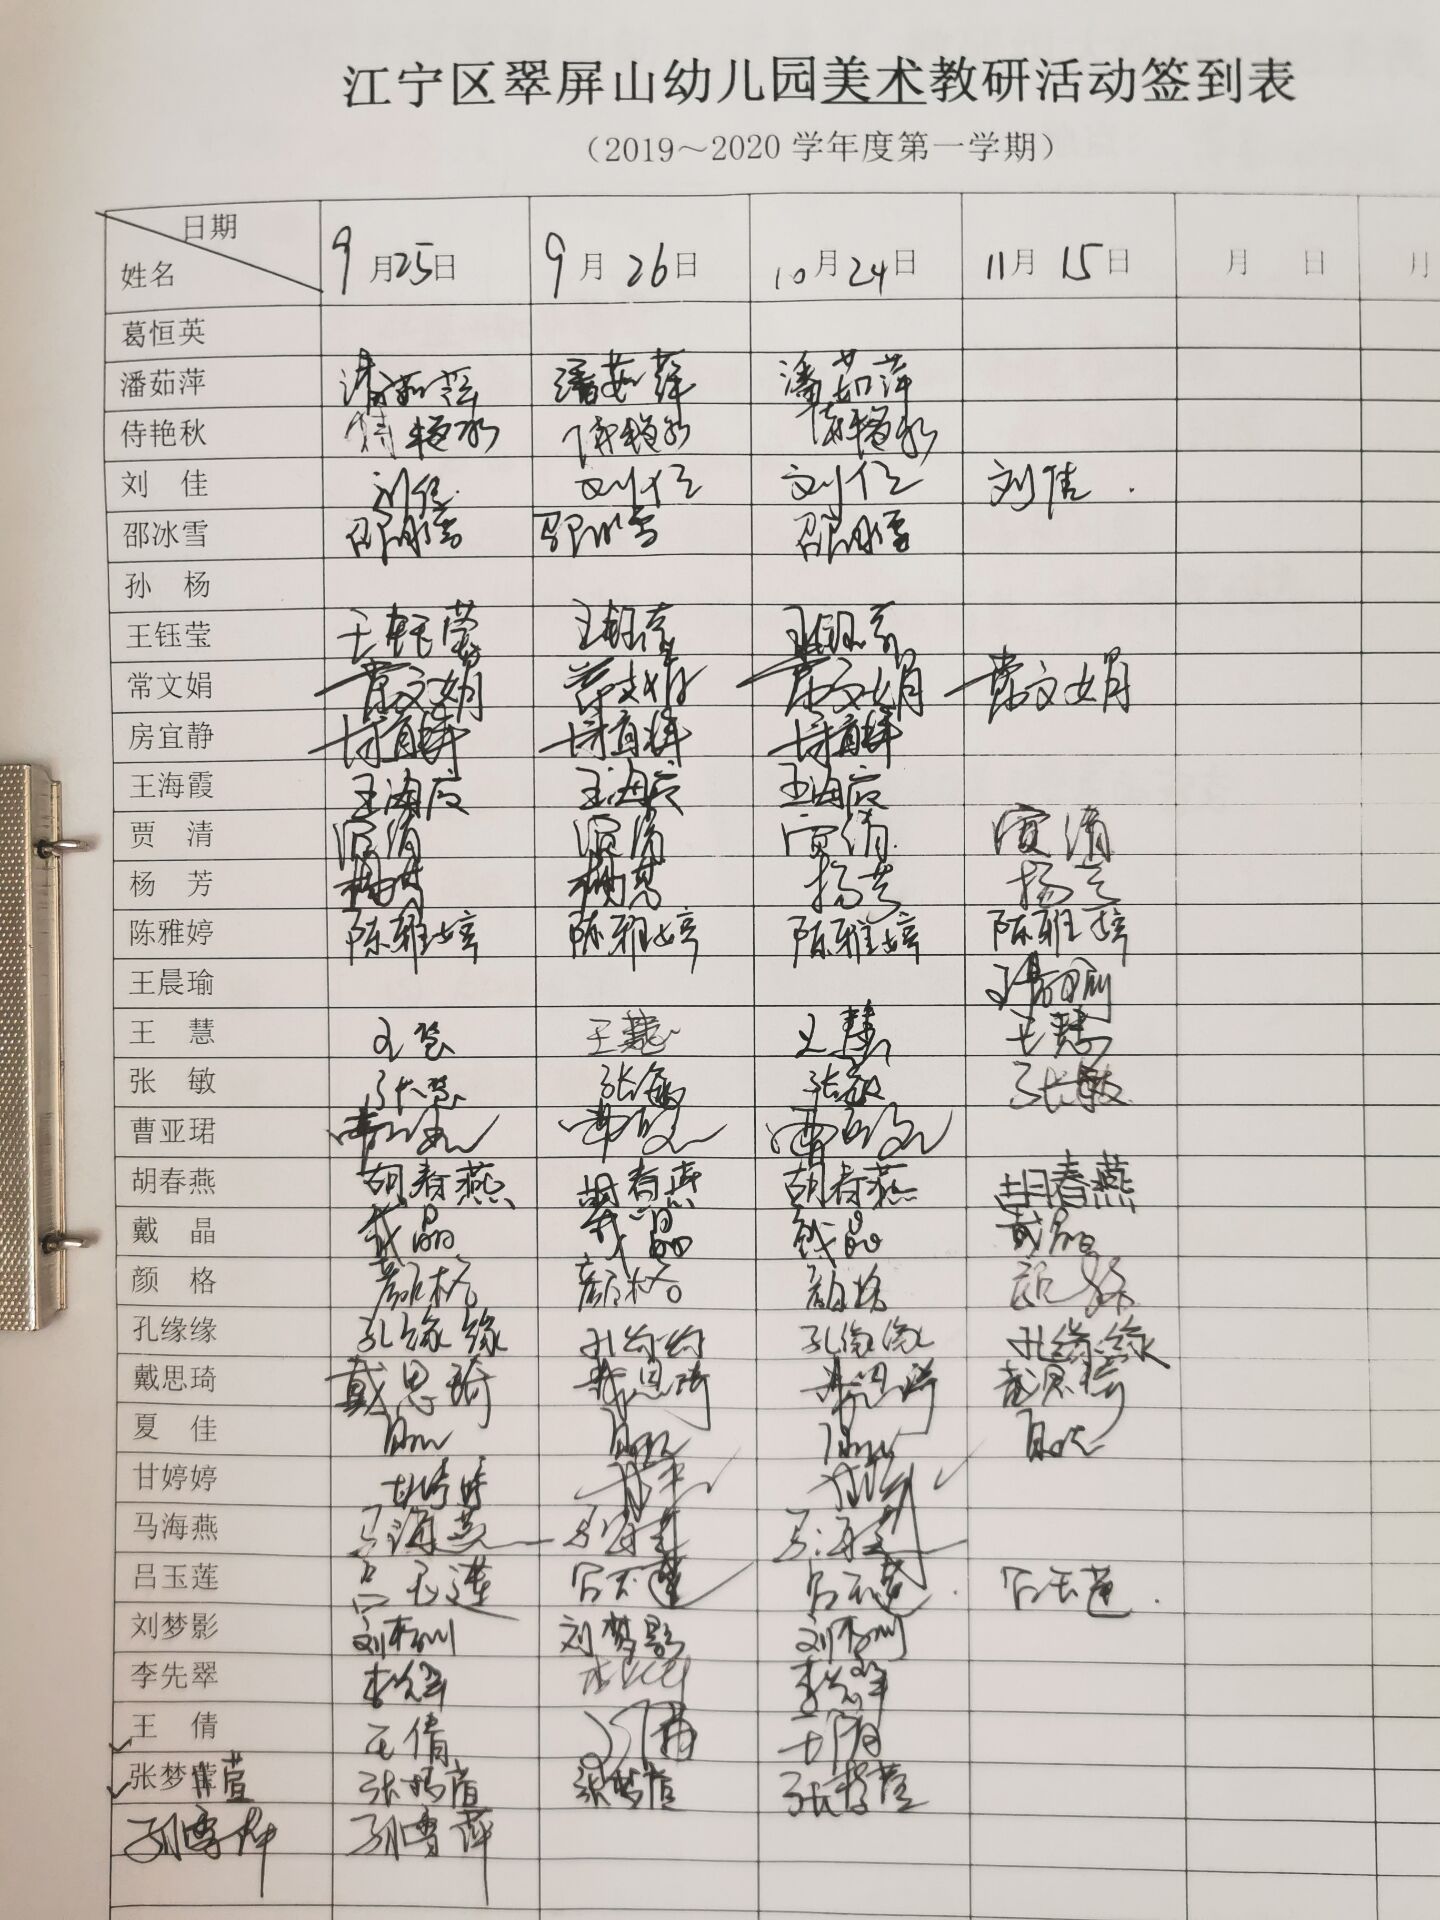 江宁区翠屏山幼儿园美术教研活动签到表
（2019～2020 学年度第一学期）
日期 姓名 9月25日 9月26日 10月24日 11月15日 月 日 月
葛恒英
潘茹萍 潘茹萍 潘茹萍 潘茹萍
侍艳秋 侍艳秋 侍艳秋 侍艳秋
刘 佳 刘佳 刘佳 刘佳 刘佳
邵冰雪 邵冰雪 邵冰雪 邵冰雪
孙 杨
王钰莹 王钰莹 王钰莹 王钰莹
常文娟 常文娟 常文娟 常文娟 常文娟
房宜静 房宜静 房宜静 房宜静
王海霞 王海霞 王海霞 王海霞
贾 清 贾清 贾清 贾清 贾清
杨 芳 杨芳 杨芳 杨芳 杨芳
陈雅婷 陈雅婷 陈雅婷 陈雅婷 陈雅婷
王晨瑜 王晨瑜
王 慧 王慧 王慧 王慧 王慧
张 敏 张敏 张敏 张敏
曹亚珺 曹亚珺 曹亚珺 曹亚珺
胡春燕 胡春燕 胡春燕 胡春燕 胡春燕
戴 晶 戴晶 戴晶 戴晶 戴晶
颜 格 颜格 颜格 颜格 颜格
孔缘缘 孔缘缘 孔缘缘 孔缘缘 孔缘缘
戴思琦 戴思琦 戴思琦 戴思琦 戴思琦
夏 佳 夏佳 夏佳 夏佳 夏佳
甘婷婷 甘婷婷 甘婷婷
马海燕 马海燕 马海燕 马海燕
吕玉莲 吕玉莲 吕玉莲 吕玉莲 吕玉莲
刘梦影 刘梦影 刘梦影 刘梦影
李先翠 李先翠 李先翠 李先翠
王 倩 王倩 王倩 王倩
张梦萱 张梦萱 张梦萱 张梦萱
孙雪萍 孙雪萍